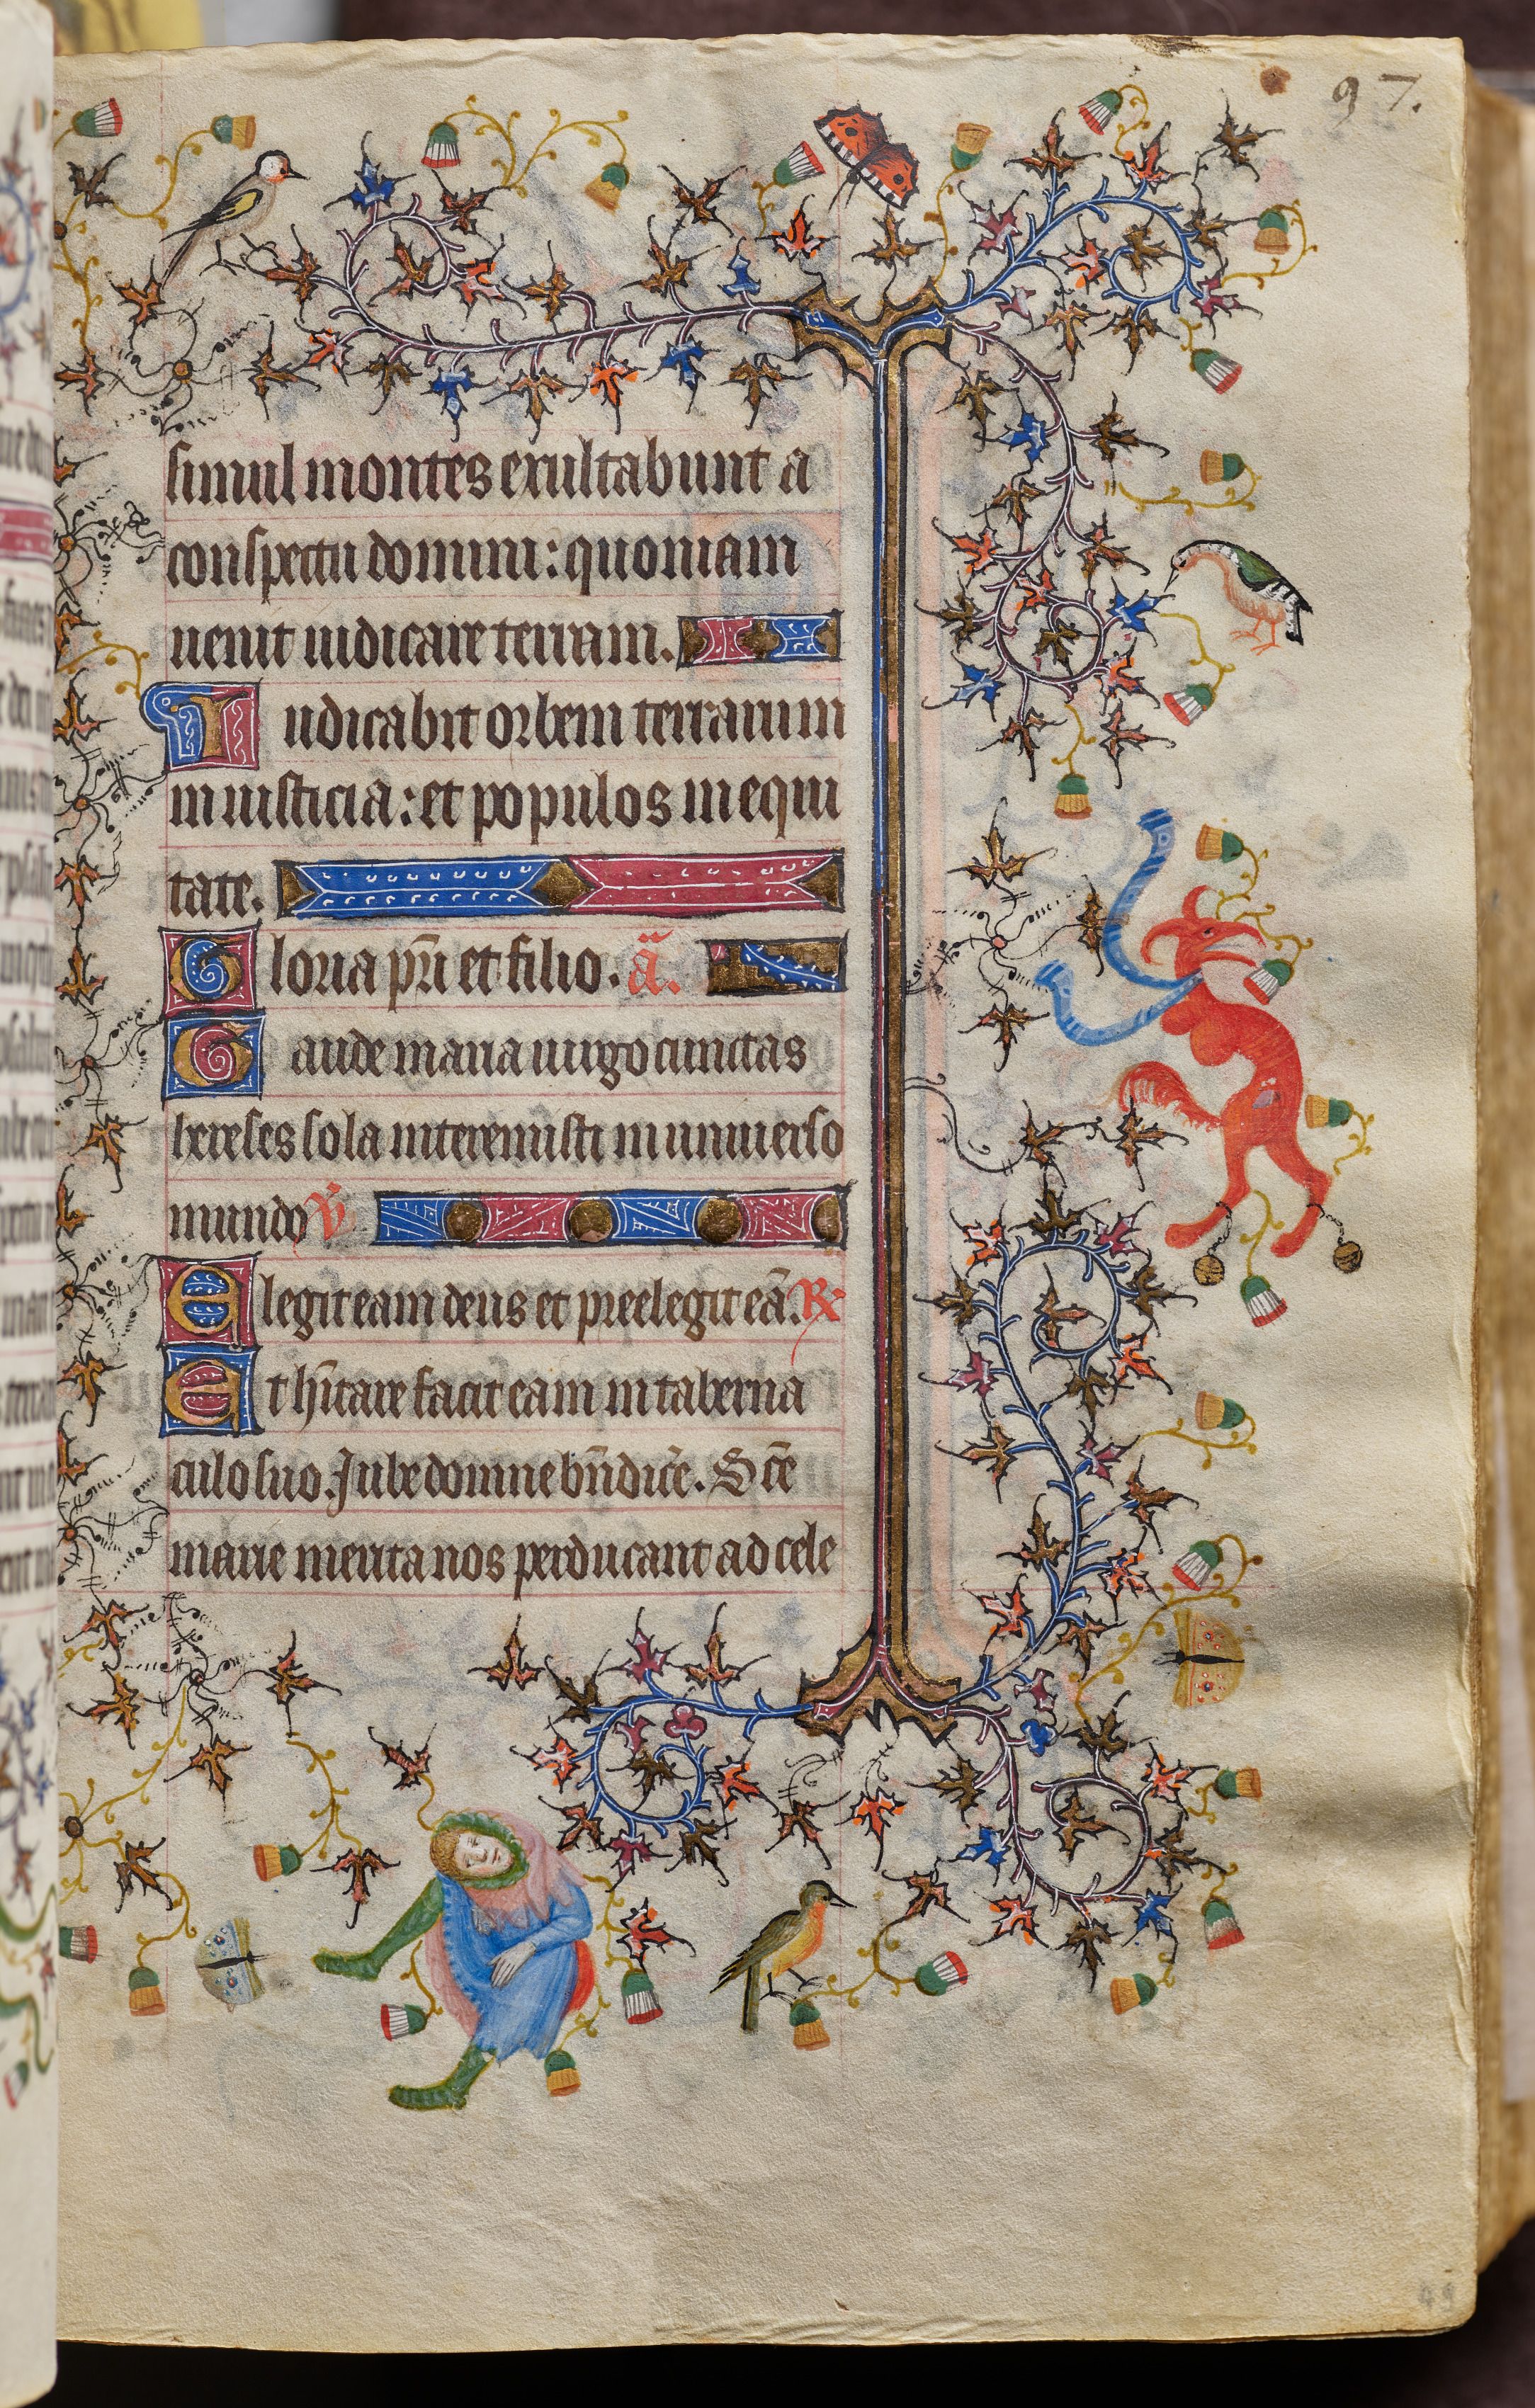 97.
simul montes exultabunt a
conspectu domini: quoniam
uenit iudicare terram.
Iudicabit orbem terrarum
in iusticia: et populos in equi
tate.
Gloria pr̄i et filio. ā.
Gaude maria uirgo cunctas
hereses sola interemisti in uniuerso
mundo ℣
Elegit eam deus et preelegit eā. ℟
Et h̄itare facit eam in taberna
culo suo. Jube domine bn̄dic̄e. Sc̄e
marie merita nos perducant ad cele
49